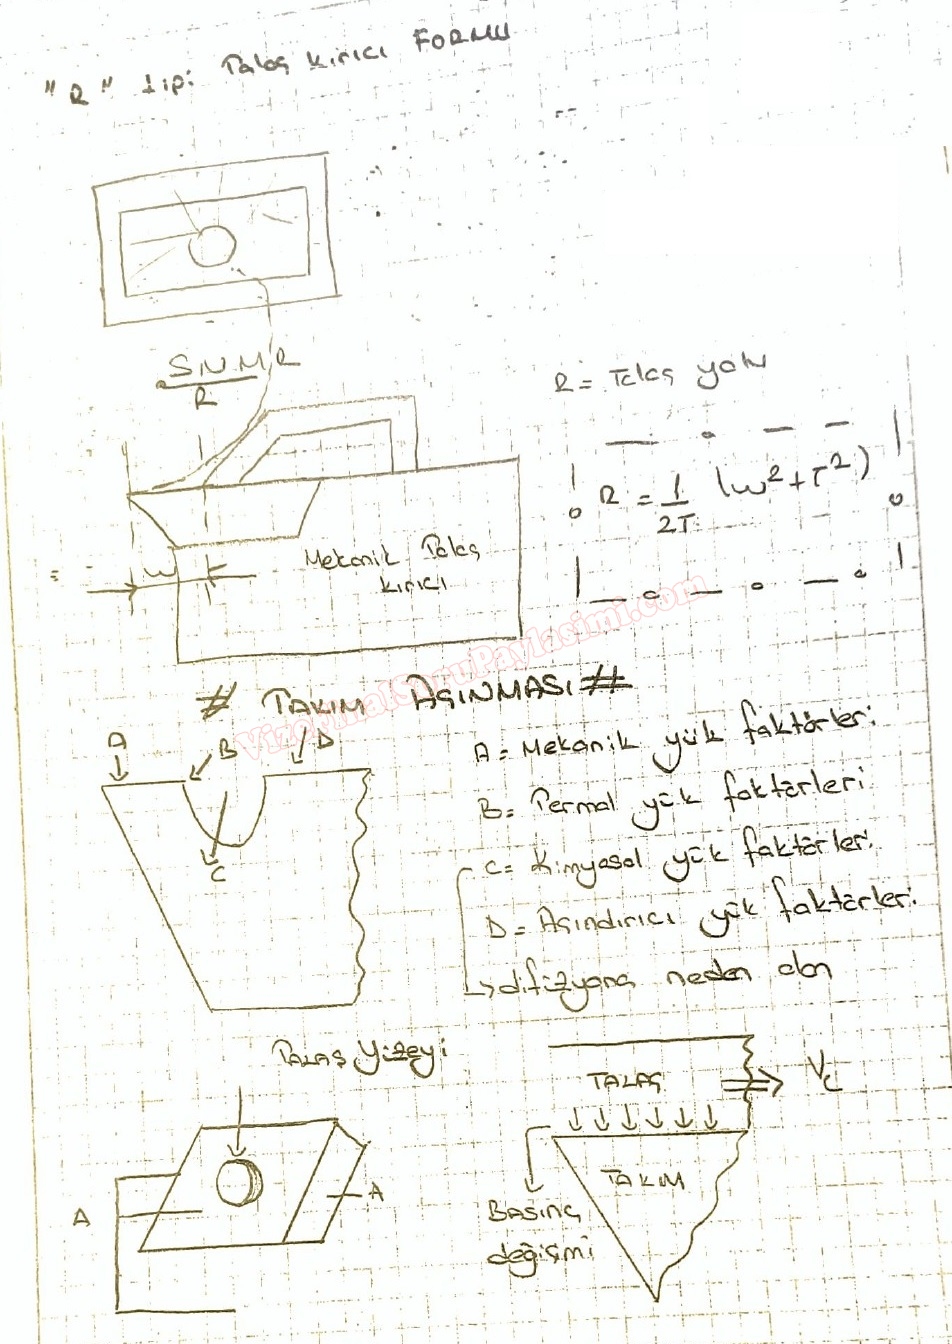 "R" tipi Talaş kırıcı FORMU
SNMR
R
R = Talaş yolu
R = 1/2T (w²+T²)
Mekanik Talaş
kırıcı
w
VizeFinalSoruPaylasimi.com
# TAKIM AŞINMASI #
A
B
D
C
A = Mekanik yük faktörleri
B = Termal yük faktörleri
C = Kimyasal yük faktörleri
D = Aşındırıcı yük faktörleri
difüzyona neden olan
TALAŞ Yüzeyi
A
A
TALAŞ
Vc
TAKIM
BASINÇ
değişimi